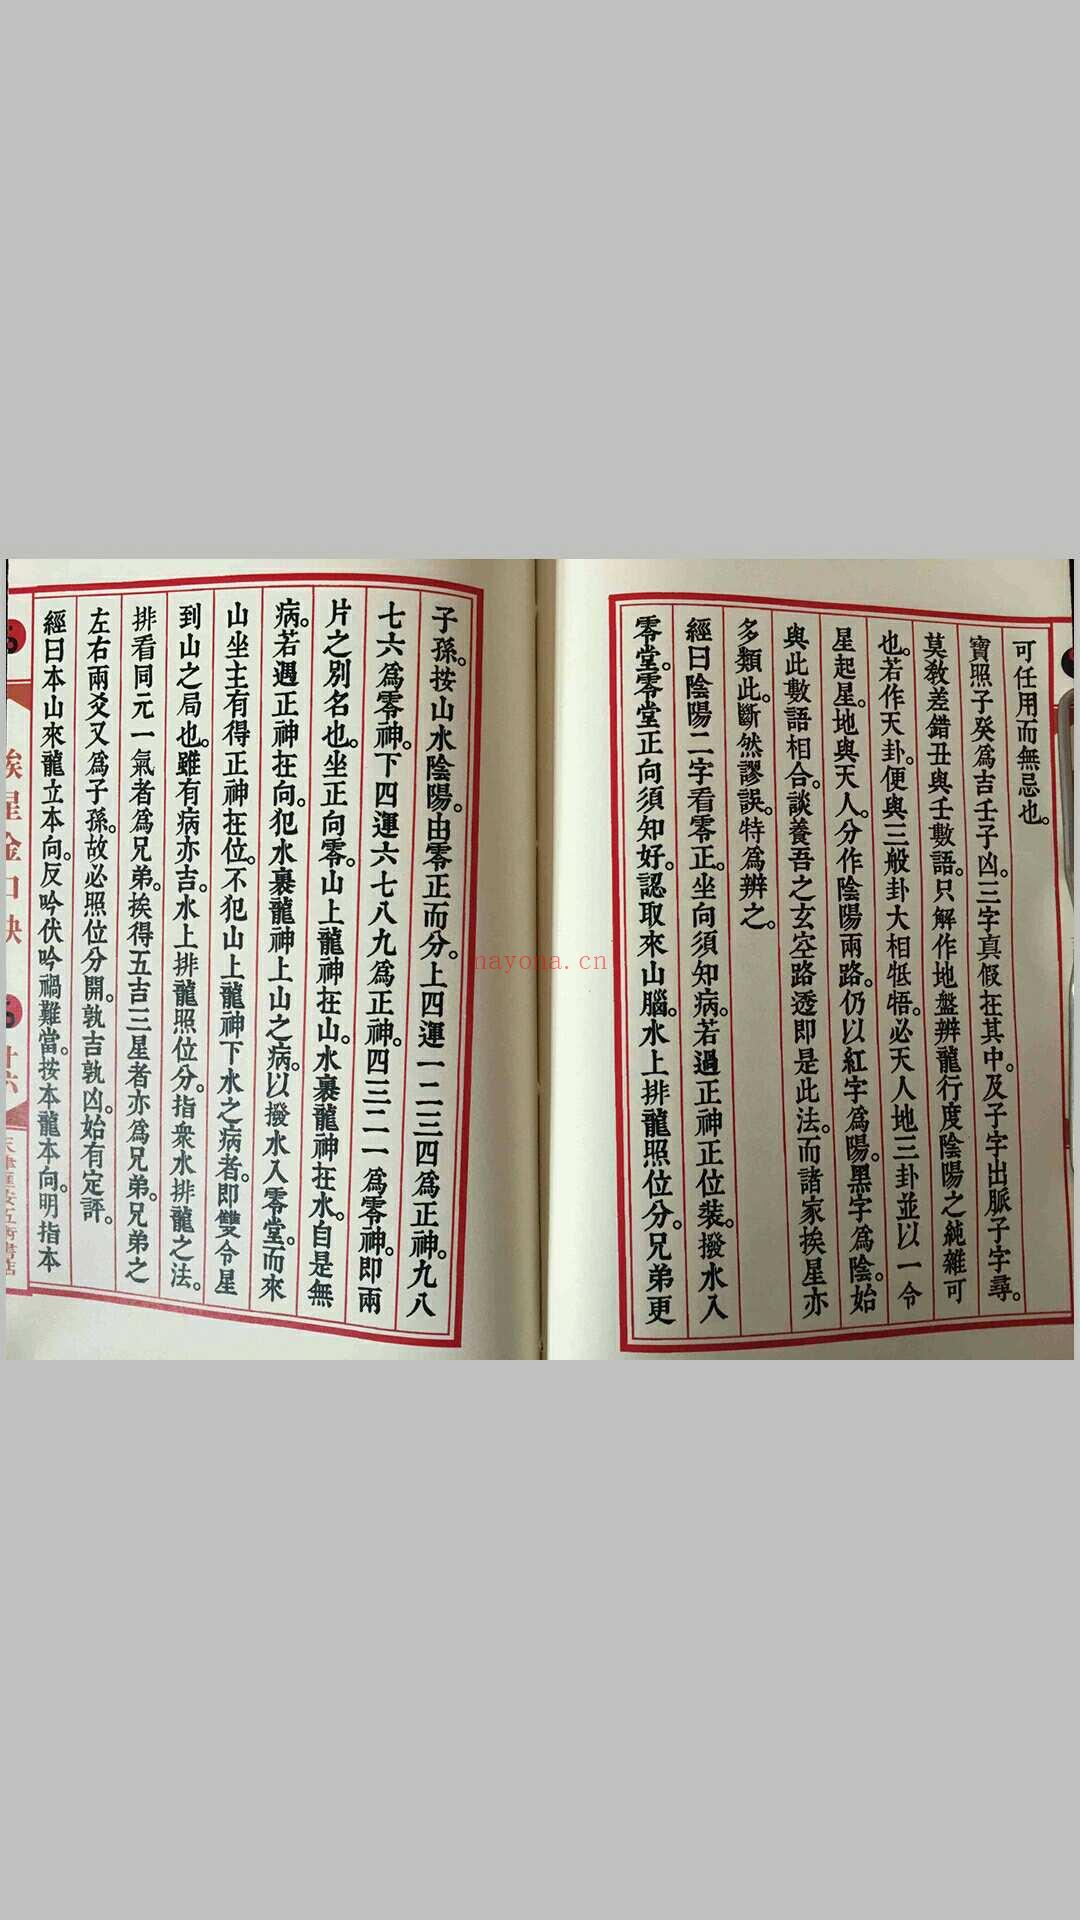 可任用而無忌也。
寶照子癸爲吉壬子凶。三字真假在其中。及子字出脈子字尋。
莫教差錯丑與壬數語。只解作地盤辨龍行度陰陽之純雜可
也。若作天卦。便與三般卦大相牴牾。必天人地三卦並以一令
星起星。地與天人。分作陰陽兩路。仍以紅字爲陽。黑字爲陰。始
與此數語相合。談養吾之玄空路透即是此法。而諸家挨星亦
多類此。斷然謬誤。特爲辨之。
經曰陰陽二字看零正。坐向須知病。若過正神正位裝。撥水入
零堂。零堂正向須知好。認取來山腦。水上排龍照位分。兄弟更
子孫。按山水陰陽。由零正而分。上四運一二三四爲正神。九八
七六爲零神。下四運六七八九爲正神。四三二一爲零神。即兩
片之別名也。坐正向零。山上龍神在山。水裏龍神在水。自是無
病。若遇正神在向。犯水裏龍神上山之病。以撥水入零堂。而來
山坐主有得正神在位。不犯山上龍神下水之病者。即雙令星
到山之局也。雖有病亦吉。水上排龍照位分。指衆水排龍之法。
排看同元一氣者爲兄弟。挨得五吉三星者亦爲兄弟。兄弟之
左右兩爻又爲子孫。故必照位分開。孰吉孰凶。始有定評。
經曰本山來龍立本向。反吟伏吟禍難當。按本龍本向。明指本
挨星金口訣
廿六
nayona.cn